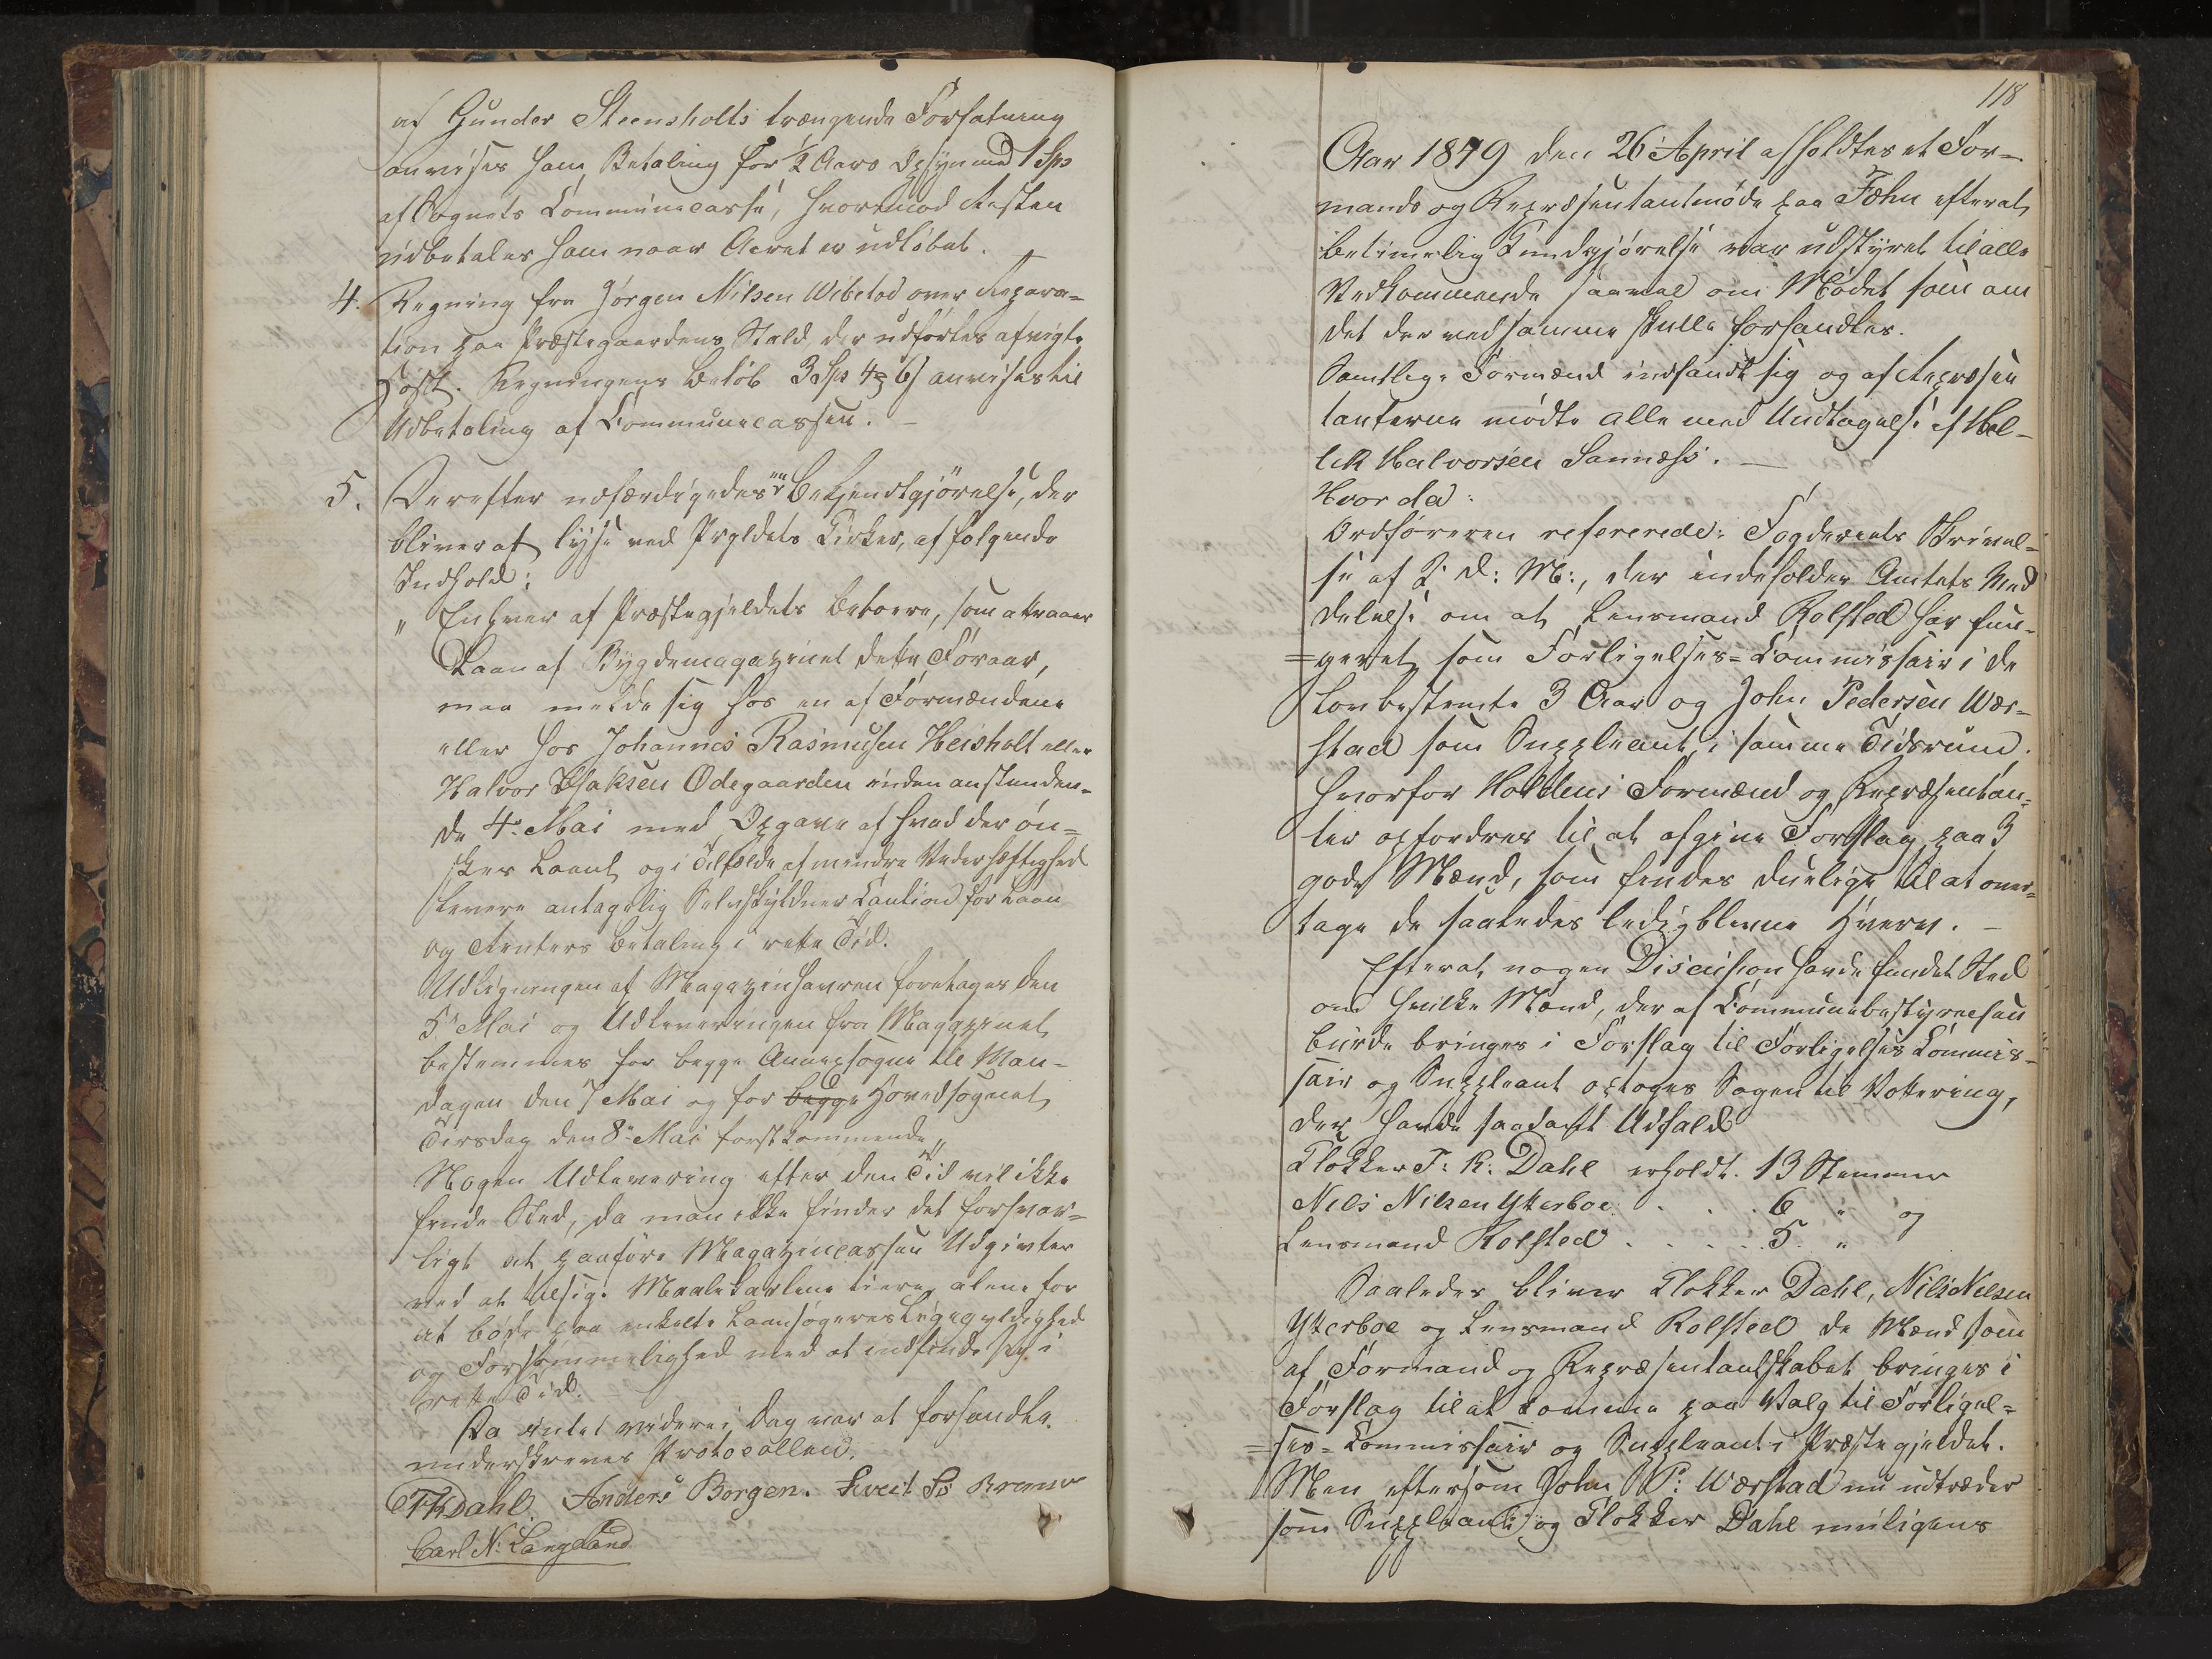 af Gunder Steensholts trængende Forfatning
anvises ham Betaling for ½ Aars Opsyn med 1 Sps
af Sognets Communecasse, hvorimod Resten
udbetales ham naar Aaret er udløbet.
4. Regning fra Jørgen Nilsen Wibetod over Repara=
tion paa Præstegaardens Stald, der udførtes afvigte
Høst. Regningens Beløb 3 Sps 4 6 s anvises til
Udbetaling af Communecassen. –
5. Derefter udfærdigedes en Bekjendtgjørelse, der
bliver at lyse ved Prgldets Kirker, af følgende
Indhold:
„ Enhver af Præstegjeldets Beboere, som attraaer
Laan af Bygdemagazinet dette Foraar,
maa melde sig hos en af Formændene
eller hos Johannes Rasmusen Heisholt eller
Halvor Isaksen Ødegaarden inden anstunden=
de 4de Mai med Opgave af hvad der øn=
skes Laant og i Tilfælde af mindre Vederhæftighed
levere antagelig Selvskyldner Caution for Laan
og Renters Betaling i rette Tid.
Udligningen af Magazinhavren foretages den
5te Mai og Udleveringen fra Magazinet
bestemmes for begge Annexsogne til Man=
dagen den 7 Mai og for begge Hovedsognet
Tirsdag den 8de Mai førstkommende„
Nogen Udlevering efter den Tid vil ikke
finde Sted, da man ikke finder det forsvar=
ligt at paaføre Magazincassen Udgivter
ved at tilsige Maalekarlene tiere, alene for
at bøde paa enkelte Laansøgeres Ligegyldighed
og Forsømmelighed med at indfinde sig i
rette Tid.
Da intet videre i Dag var at forhandle
underskreves Protocollen.
TKDahl. Anders Borgen. Sveit
Carl N: Langeland
118
Aar 1849 den 26 April afholdtes et For=
mands og Repræsentantmøde paa Fæhn efterat
betimelig Kundgjørelse var udstyret til alle
Vedkommende saavel om Mødet som om
det der ved samme skulle forhandles.
Samtlige Formænd indfandt sig og af Repræsen
tanterne mødte alle med Undtagelse af Hel=
lek Halvorsen Sannæss. –
Hvor da:
Ordføreren refererede: Fogderiets Skrivel=
se af D: M:, der indeholder Amtets Med
delelse om at Lensmand Rolfsted har fun=
=geret som Forligelses=Commissair i de
Lovbestemte 3 Aar og John Pedersen Wær=
stad som Suppleant i samme Tidsrum.
hvorfor Holdens Formænd og Repræsentan=
ter opfordres til at afgive Forslag paa 3
gode Mænd, som findes duelige til at over=
tage de saaledes ledigblevne Hverv. –
Efterat nogen Discusion havde fundet Sted
om hvilke Mænd, der af Communebestyrelsen
burde bringes i Forslag til Forligelses Commis=
sair og Suppleant optoges Sagen til Votering,
der havde saadant Udfald
Klokker T: K: Dahl erholdt. 13 Stemmer
Nils Nilsen Ytterboe . . . 6 „ og
Lensmand Rolfsted . . . . . 5. „
Saaledes bliver Klokker Dahl, Nils Nilsen
Ytterboe og Lensmand Rolfsted de Mænd som
af Formand og Repræsentantskabet bringes i
Forslag til at komme paa Valg til Forligel=
=ses=Commissair og Suppleant i Præstegjeldet.
Men eftersom John P: Wærstad nu udtræder
som Suppleant og Klokker Dahl muligens